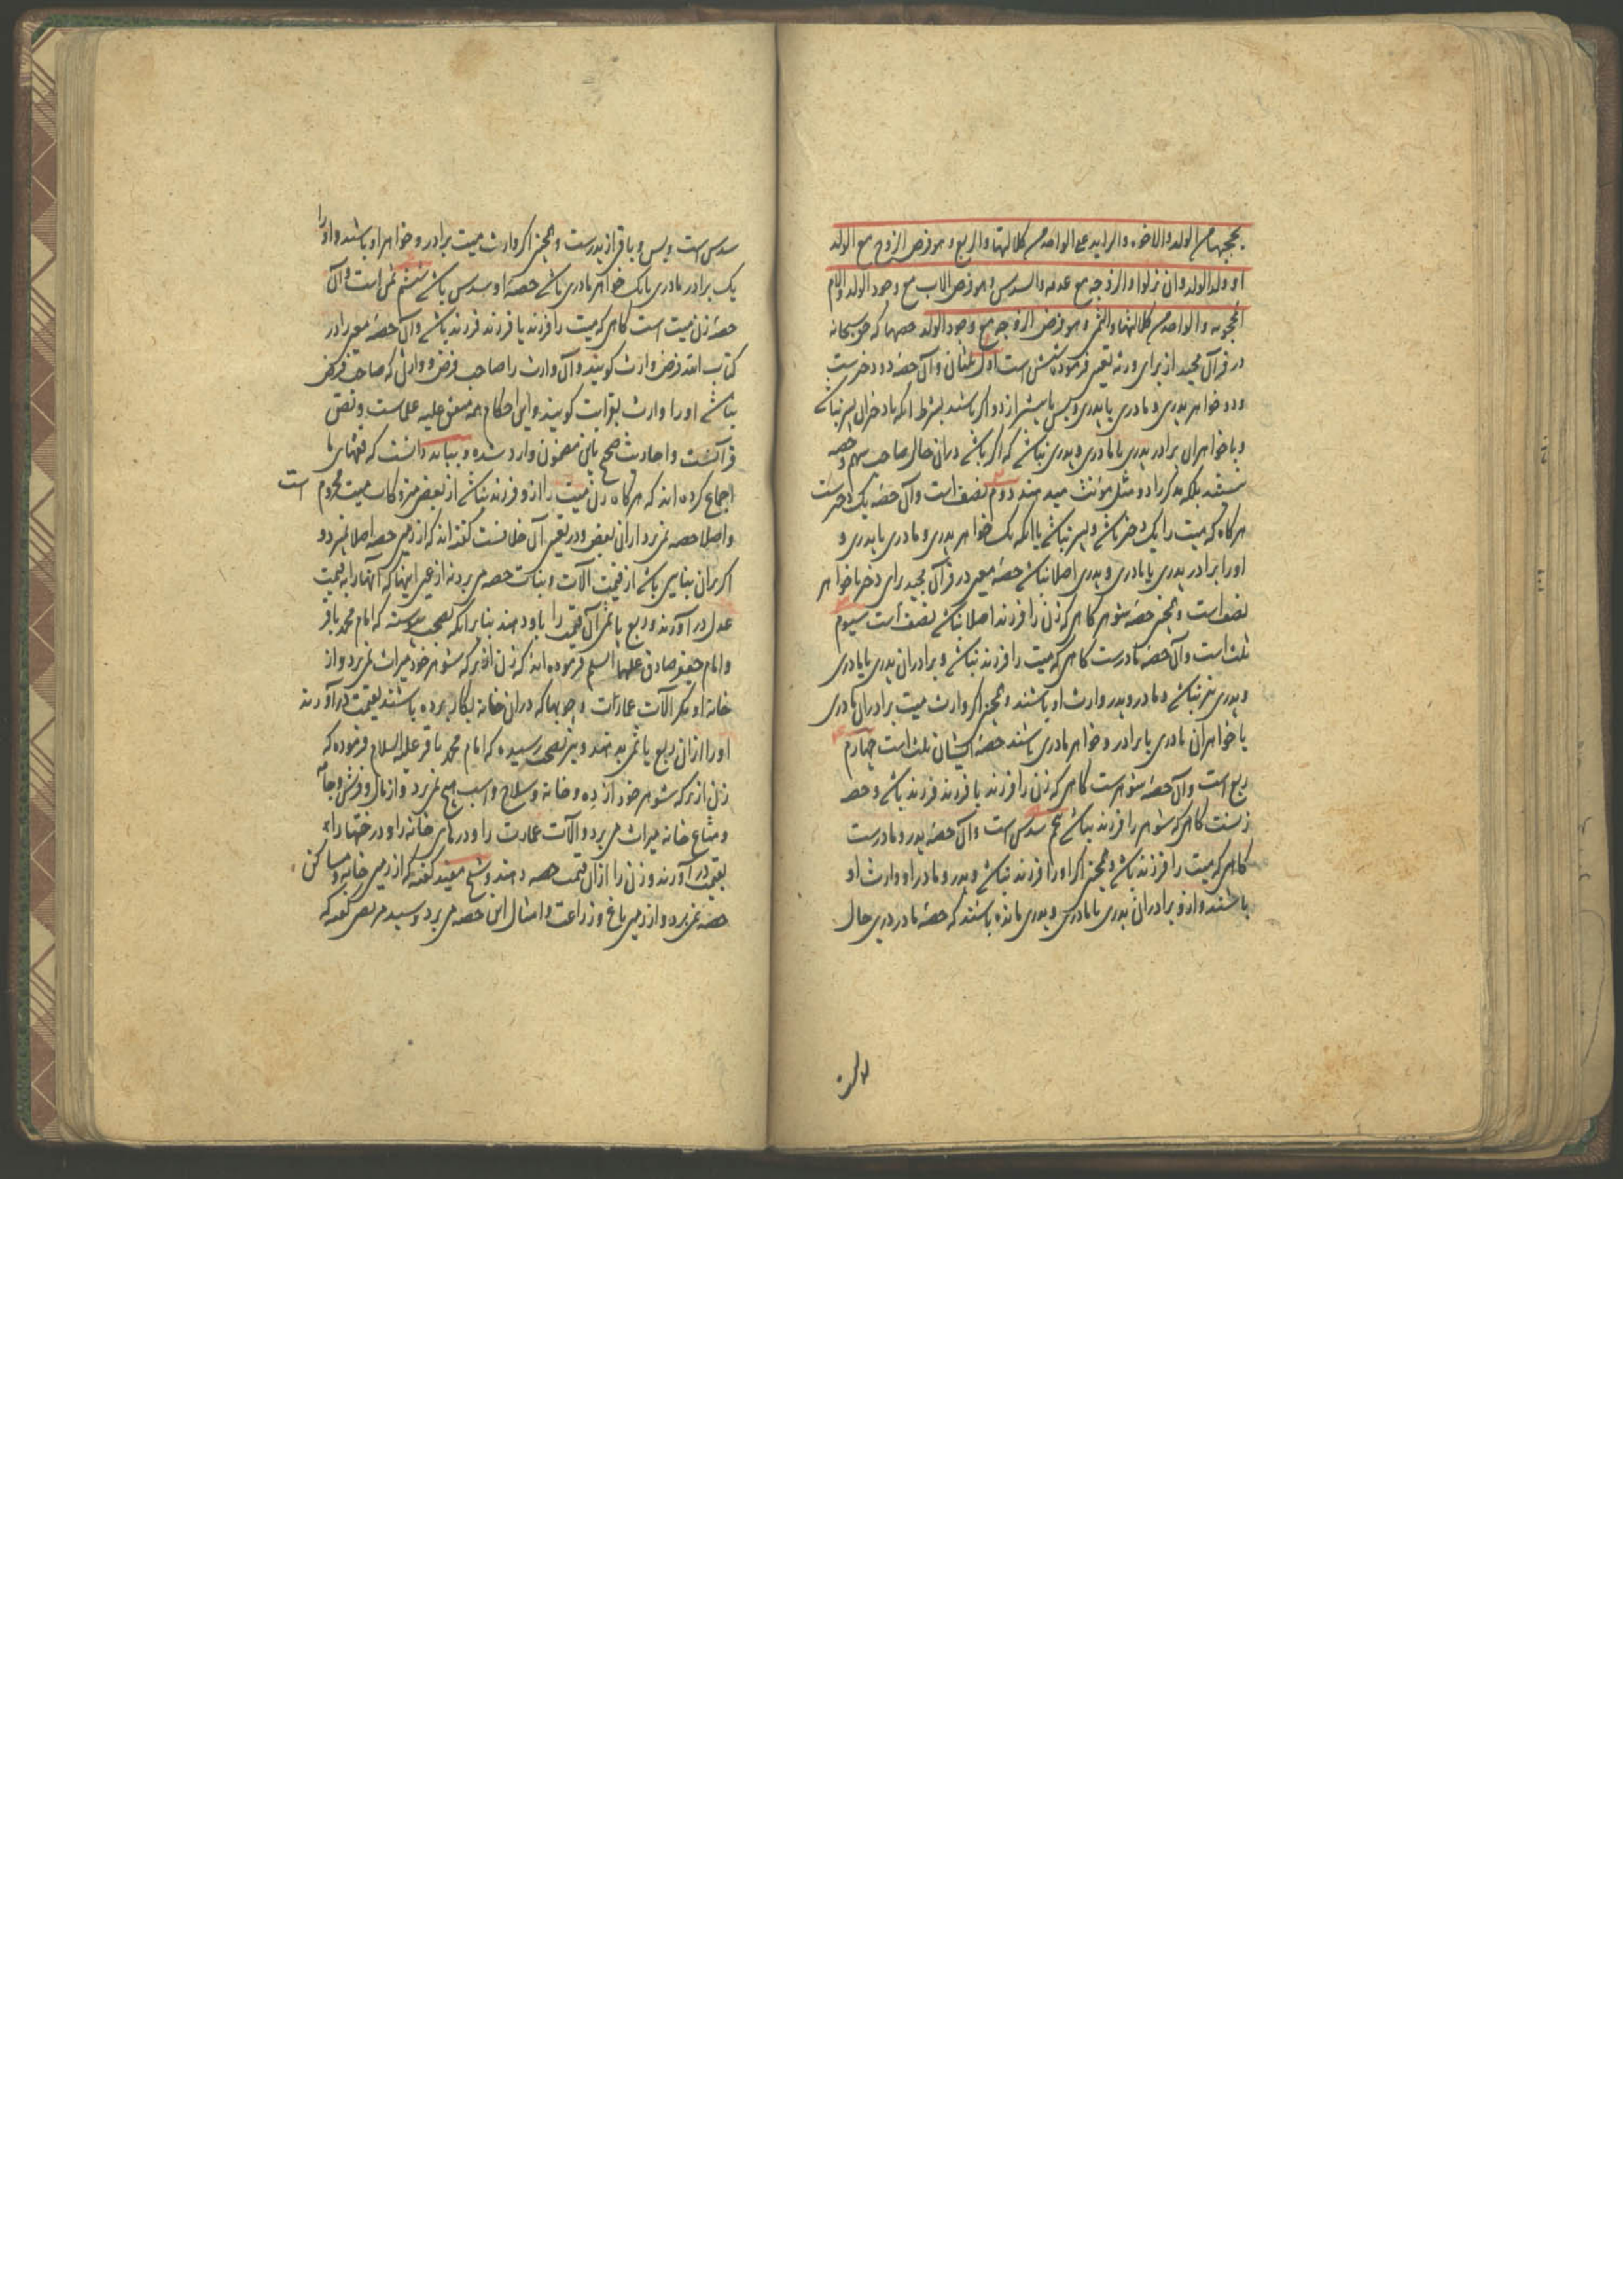 یحجبها من الولد والاخوة والزاید علی الواحد من کلالتها والربع وهو فرض الزوج مع الولد
او ولد الولد وان نزلوا والزوجه مع عدمه والسدس وهو فرض الاب مع وجود الولد والام
المحجوبه والواحد من کلالتها والثمن وهو فرض الزوجه مع وجود الولد حصهاکه حق سبحانه
در قرآن مجید از برای ورثه تعیین فرموده شش است اول ثلثان وآن حصهٔ دو دخترست
ودو خواهر پدری ومادری یا پدری وبس یا بیشتر از دو اکر باشند بشرط انکه با دختران پسر نباشد
وبا خواهران برادر پدری یا مادری وپدری نباشد که اکر باشد دران حال صاحب سهم وحصه
نیستند بلکه مذکر را دو مثل مؤنث میدهند دوم نصف است وآن حصهٔ یک دخترست
هرکاه که میت را یک دختر باشد وپسر نباشد یا انکه یک خواهر پدری ومادری یا پدری و
اورا برادر پدری یا مادری وپدری اصلا نباشد حصهٔ معین در قرآن مجید برای دختر یا خواهر
نصف است وهمچنین حصهٔ شوهر کاهی که زن را فرزند اصلا نباشد نصف است سیوم
ثلث است وآن حصهٔ مادرست کاهی که میت را فرزند نباشد وبرادران پدری یا مادری
وپدری نیز نباشد ومادر وپدر وارث او باشند وهمچنین اکر وارث میت برادران مادری
یا خواهران مادری یا برادر وخواهر مادری باشند حصهٔ ایشان ثلث است چهارم
ربع است وآن حصهٔ شوهرست کاهی که زن را فرزند یا فرزند فرزند باشد وحصه
زنست کاهی که شوهر را فرزند نباشد پنجم سدس است وآن حصهٔ پدر ومادرست
کاهی که میت را فرزند باشد وهمچنین اکر اورا فرزند نباشد وپدر ومادر او وارث او
باشند وازو برادران پدری یا مادری وپدری مانده باشند که حصهٔ مادر درین حال
سدس است وبس وباقی از پدرست وهمچنین اکر وارث میت برادر وخواهر او باشند واورا
یک برادر مادری یا یک خواهر مادری باشد حصهٔ او سدس باشد ششم ثمن است وآن
حصهٔ زن میت است کاهی که میت را فرزند یا فرزند فرزند باشد وآن حصهٔ معین را در
کتاب الله فرض وارث کویند وآن وارث را صاحب فرض ووارثی که صاحب فرض
نباشد اورا وارث بقرابت کویند واین احکام همه متفق علیه علماست وبنص
قرآنست واحادیث صحیح باین مضمون وارد شده وبباید دانست که فقهای ما
اجماع کرده اند که هرکاه زن میت را ازو فرزند نباشد از بعض متروکات میت محروم است
واصلا حصه نمی برد از ان بعض ودر تعیین آن خلافست کفته اند که از زمین حصه اصلا نمیبرد و
اکر بران بنایی باشد از قیمت آلات وبنات حصه می برد نه از عین اینها که آنها را به قیمت
عدل در آورند وربع یا ثمن آن قیمت را باو دهند بنا برانکه بصحت پیوسته که امام محمد باقر
وامام جعفر صادق علیهما السلم فرموده اند که زن از ترکه شوهر خود میراث نمی برد واز
خانهٔ او مکر آلات عمارات وچوبها که دران خانه بکار برده باشند بقیمت در آورند
اورا ازان ربع یا ثمن بدهند ونیز بصحت رسیده که امام محمد باقر علیه السلام فرموده که
زن از ترکه شوهر خود از ده وخانه وسلاح واسب هیچ نمی برد واز مال وفرش وجامه
ومتاع خانه میراث می برد وآلات عمارت را ودرهای خانه را ودرختها را
بقیمت در آورند وزن را ازان قیمت حصه دهند وشیخ مفید کفته که از زمین خانه ومساکن
حصه نمی برد واز زمین باغ وزراعت وامثال این حصه می برد وسید مرتضی کفته که